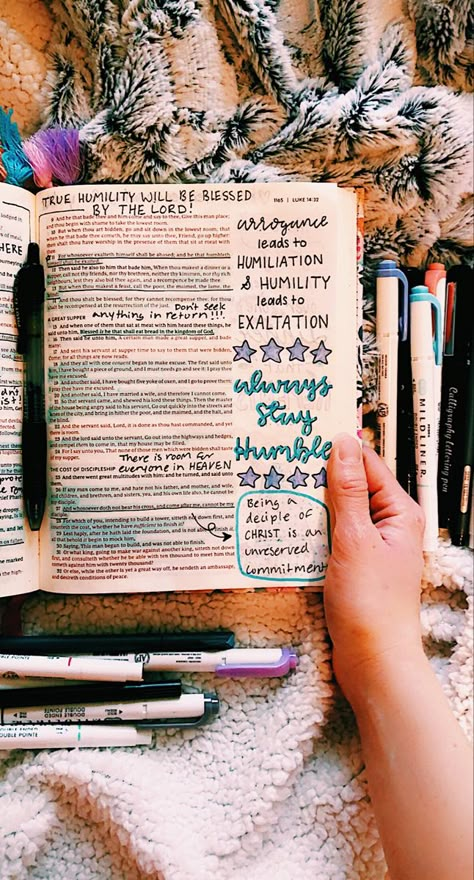 TRUE HUMILITY WILL BE BLESSED
BY THE LORD!
1165 | LUKE 14:32
9 And he that bade thee and him come and say to thee, Give this man place;
and thou begin with shame to take the lowest room.
10 But when thou art bidden, go and sit down in the lowest room, that
when he that bade thee cometh, he may say unto thee, Friend, go up higher:
then shalt thou have worship in the presence of them that sit at meat with
thee.
11 For whosoever exalteth himself shall be abased; and he that humbleth
himself shall be exalted.
12 Then said he also to him that bade him, When thou makest a dinner or a
supper, call not thy friends, nor thy brethren, neither thy kinsmen, nor thy rich
neighbours; lest they also bid thee again, and a recompence be made thee.
13 But when thou makest a feast, call the poor, the maimed, the lame,
And thou shalt be blessed; for they cannot recompense thee: for thou
shalt be recompensed at the resurrection of the just.
Don't seek
anything in return!!!
A GREAT SUPPER
15 And when one of them that sat at meat with him heard these things, he
said unto him, Blessed is he that shall eat bread in the kingdom of God.
16 Then said he unto him, A certain man made a great supper, and bade
many:
17 And sent his servant at supper time to say to them that were bidden,
Come; for all things are now ready.
18 And they all with one consent began to make excuse. The first said unto
him, I have bought a piece of ground, and I must needs go and see it: I pray thee
have me excused.
19 And another said, I have bought five yoke of oxen, and I go to prove them:
I pray thee have me excused.
20 And another said, I have married a wife, and therefore I cannot come.
21 So that servant came, and shewed his lord these things. Then the master
of the house being angry said to his servant, Go out quickly into the streets and
lanes of the city, and bring in hither the poor, and the maimed, and the halt,
and the blind.
22 And the servant said, Lord, it is done as thou hast commanded, and yet
there is room.
23 And the lord said unto the servant, Go out into the highways and hedges,
and compel them to come in, that my house may be filled.
24 For I say unto you, That none of those men which were bidden shall taste
of my supper.
There is room for
everyone in HEAVEN
THE COST OF DISCIPLESHIP
25 And there went great multitudes with him: and he turned, and said unto
them,
26 If any man come to me, and hate not his father, and mother, and wife,
and children, and brethren, and sisters, yea, and his own life also, he cannot be
my disciple.
27 And whosoever doth not bear his cross, and come after me, cannot be my
disciple.
28 For which of you, intending to build a tower, sitteth not down first,
and counteth the cost, whether he have sufficient to finish it?
29 Lest haply, after he hath laid the foundation, and is not able to finish it,
all that behold it begin to mock him,
30 Saying, This man began to build, and was not able to finish.
31 Or what king, going to make war against another king, sitteth not down
first, and consulteth whether he be able with ten thousand to meet him that
cometh against him with twenty thousand?
32 Or else, while the other is yet a great way off, he sendeth an ambassage,
and desireth conditions of peace.
arrogance
leads to
HUMILIATION
& HUMILITY
leads to
EXALTATION
always
Stay
Humble
Being a
deciple of
CHRIST is an
unreserved
commitment
HERE
DOUBLE POINTE
DOUBLE ENDED
DOUBLE POINTE
MILLINER
Calligraphy lettering pen